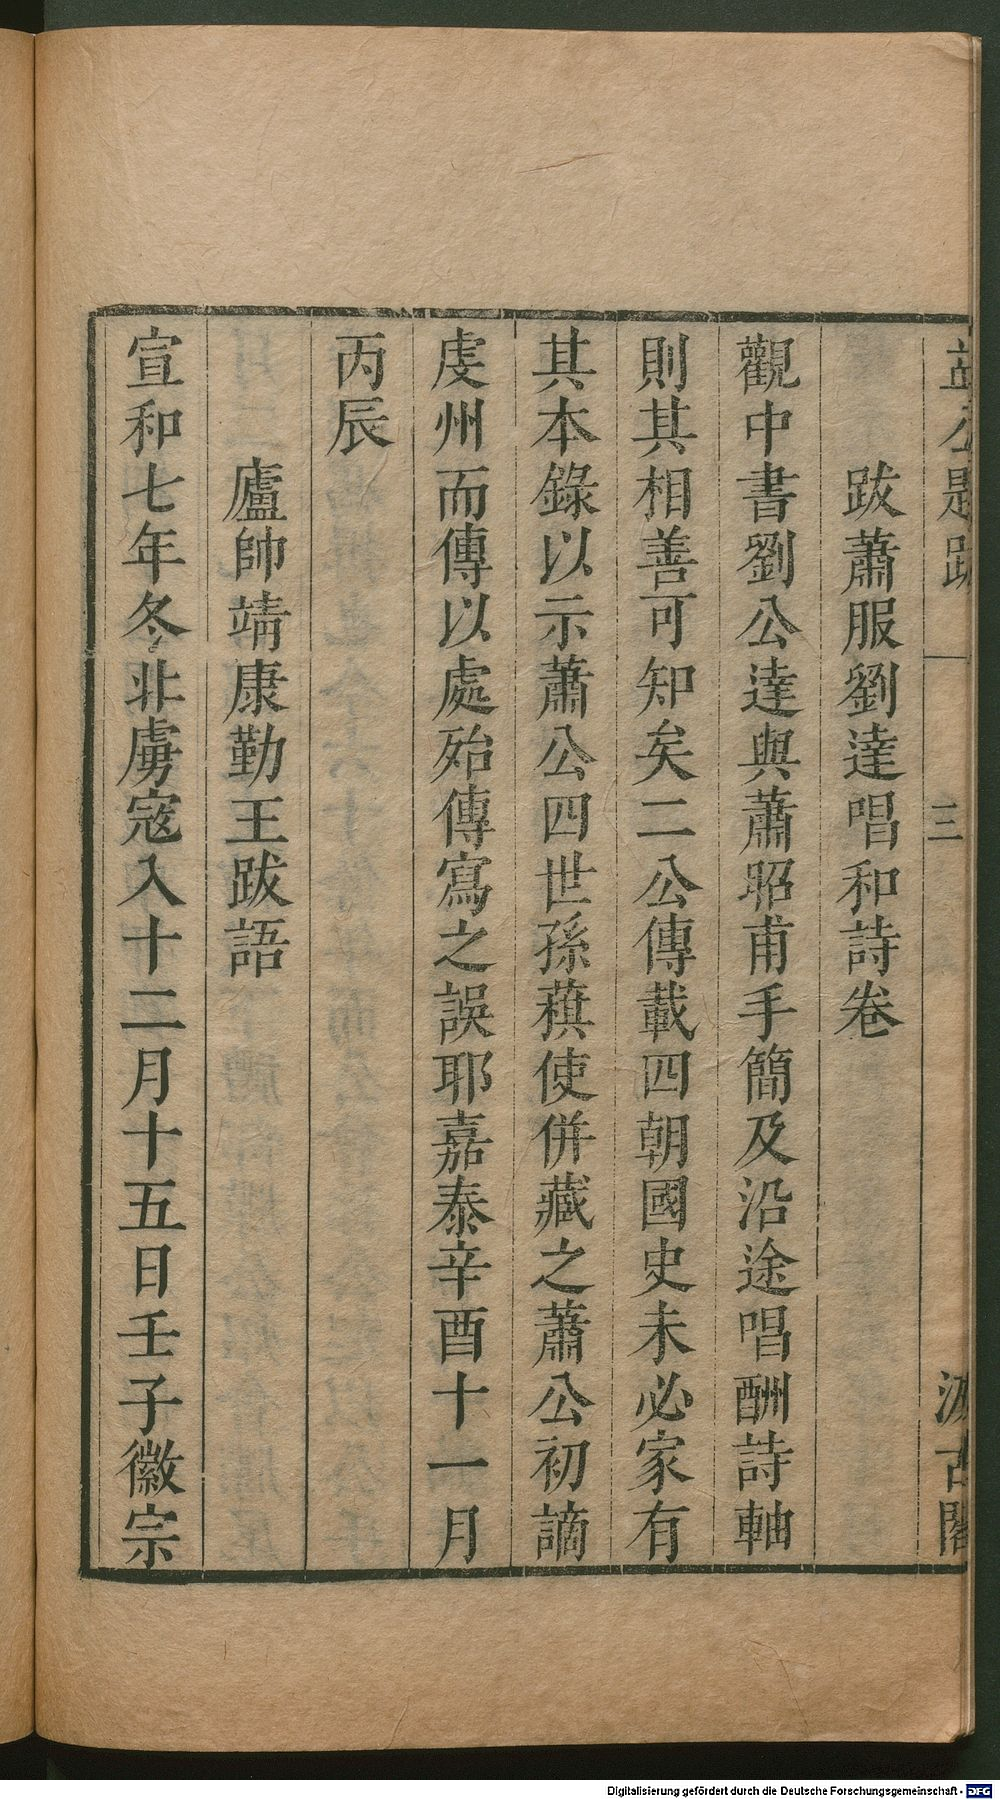 益公題跋 三 汲古閣
跋蕭服劉達唱和詩卷
觀中書劉公達與蕭昭甫手簡及沿途唱酬詩軸
則其相善可知矣二公傳載四朝國史未必家有
其本錄以示蕭公四世孫蘱使併藏之蕭公初謫
虔州而傳以處殆傳寫之誤耶嘉泰辛酉十一月
丙辰
廬帥靖康勤王跋語
宣和七年冬北虜寇入十二月十五日壬子徽宗
Digitalisierung gefördert durch die Deutsche Forschungsgemeinschaft - DFG